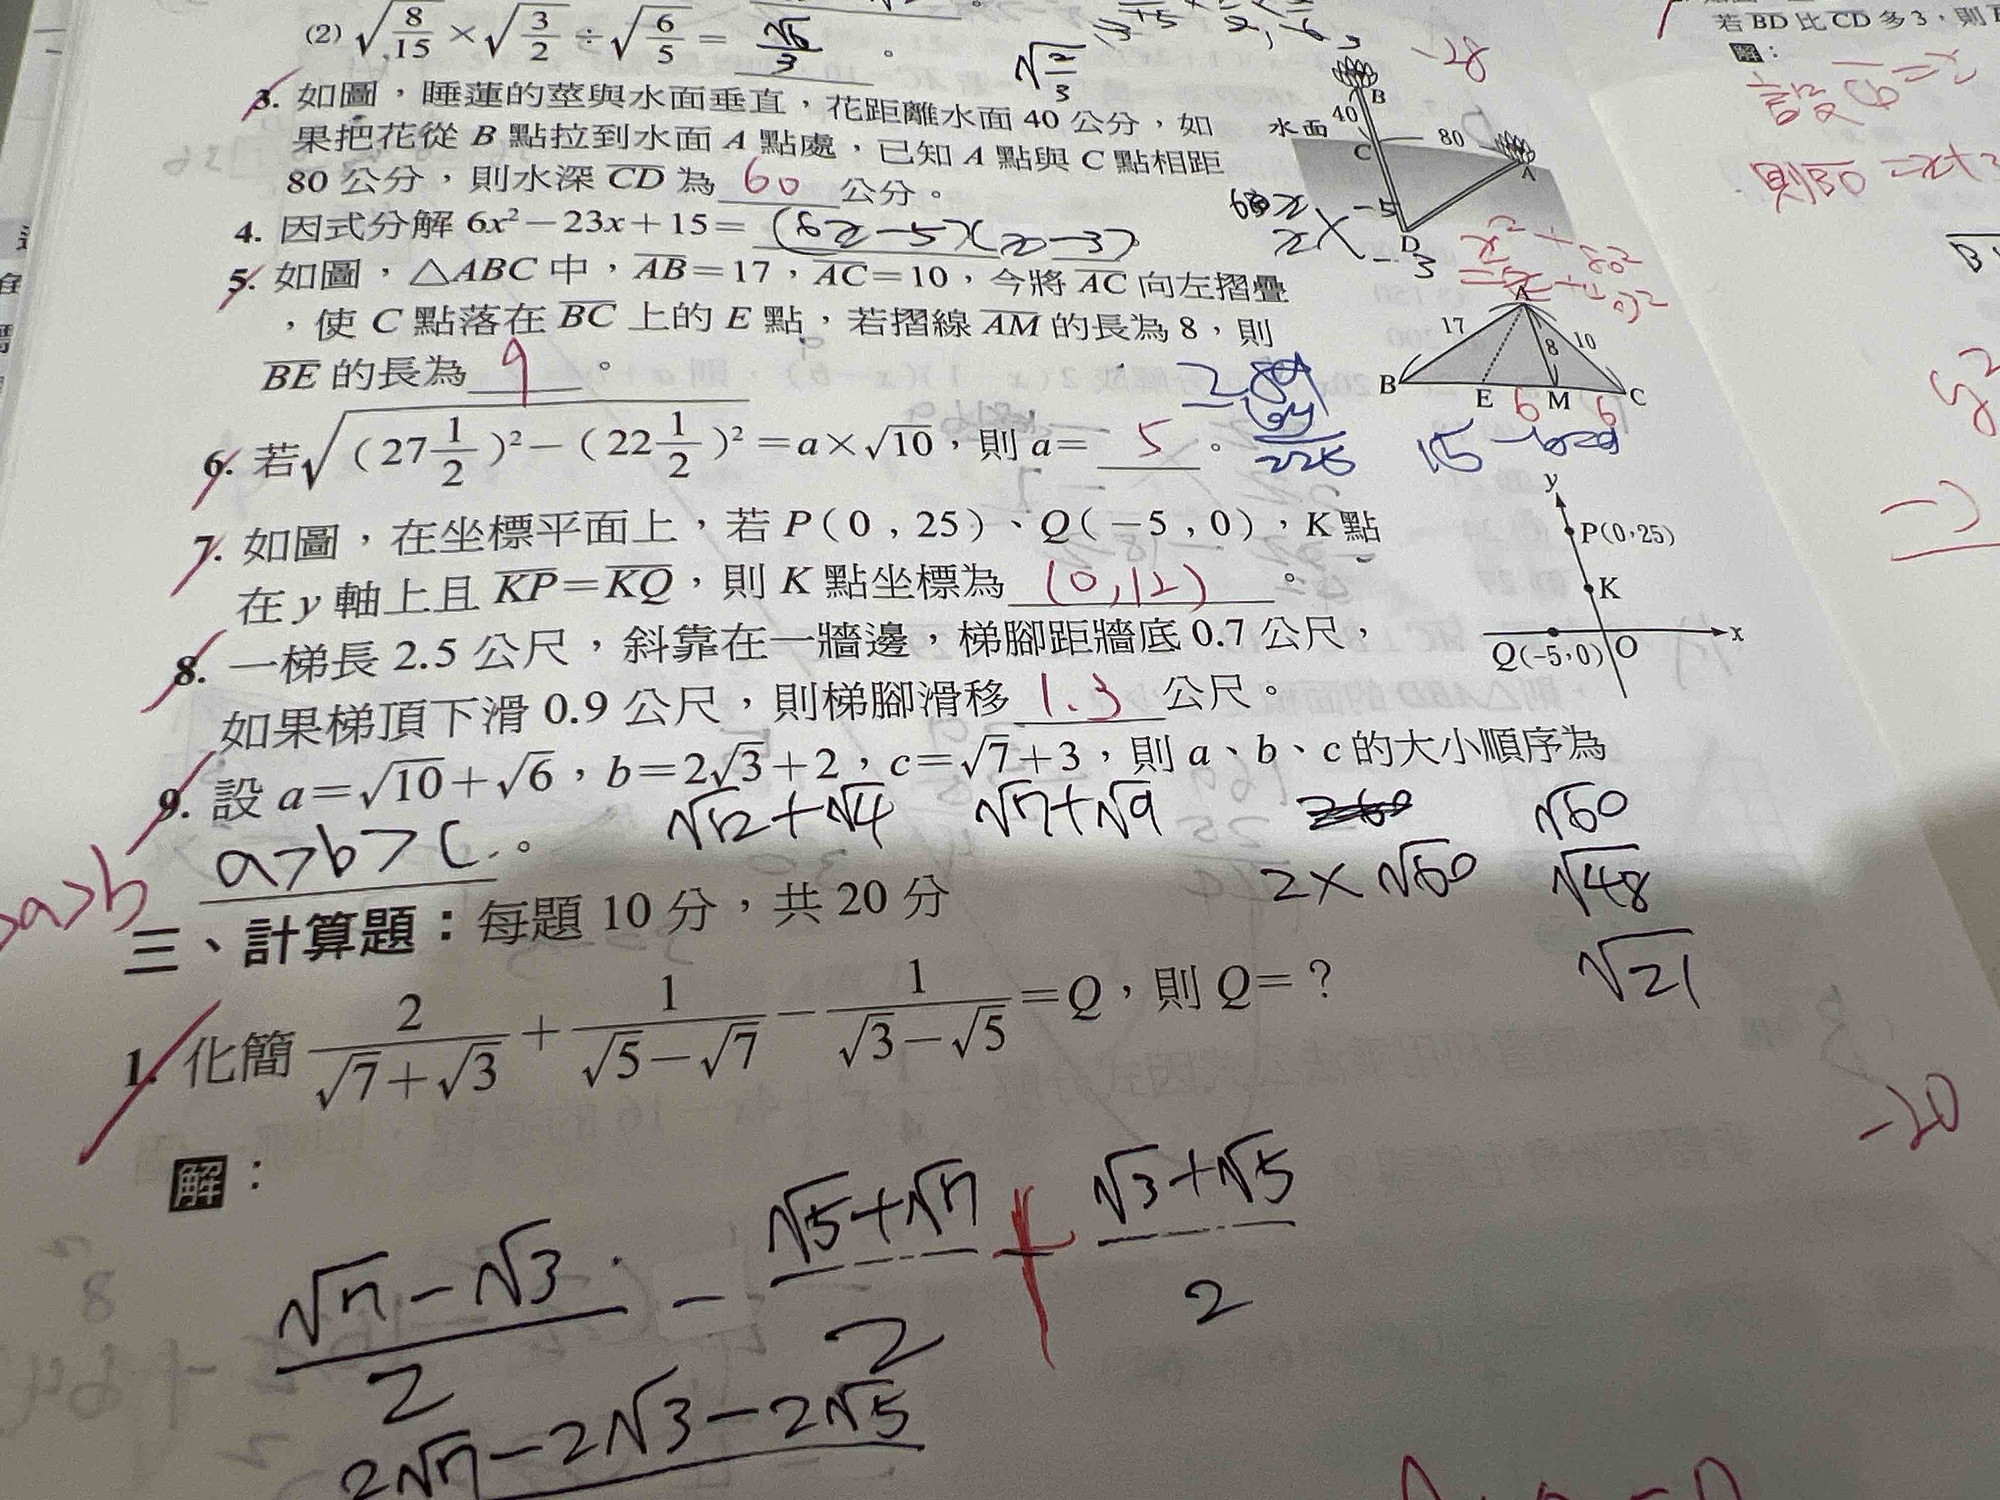 (2) √(8/15) × √(3/2) ÷ √(6/5) = √6/3 。
√(2/3)
-28
3. 如圖，睡蓮的莖與水面垂直，花距離水面 40 公分，如
果把花從 B 點拉到水面 A 點處，已知 A 點與 C 點相距
80 公分，則水深 CD 為 60 公分。
水面 40 B C 80 A D
4. 因式分解 6x²－23x＋15＝ (6x-5)(x-3)
x -5
x -3
x²+80²
=(x+40)²
5. 如圖，△ABC 中，AB＝17，AC＝10，今將 AC 向左摺疊
，使 C 點落在 BC 上的 E 點，若摺線 AM 的長為 8，則
BE 的長為 9 。
A 17 8 10 B E M C
6 6
289
-64
225
15
6. 若√((27 1/2)²－(22 1/2)²)＝a×√10，則 a＝ 5 。
7. 如圖，在坐標平面上，若 P(0 , 25)、Q(－5 , 0)，K 點
在 y 軸上且 KP＝KQ，則 K 點坐標為 (0,12) 。
y P(0,25) K x Q(-5,0) O
8. 一梯長 2.5 公尺，斜靠在一牆邊，梯腳距牆底 0.7 公尺，
如果梯頂下滑 0.9 公尺，則梯腳滑移 1.3 公尺。
9. 設 a＝√10＋√6，b＝2√3＋2，c＝√7＋3，則 a、b、c 的大小順序為
a>b>c 。
√12+√4 √7+√9
√60
2×√60 √48
√21
>a>b
三、計算題：每題 10 分，共 20 分
1. 化簡 2/(√7＋√3)＋1/(√5－√7)－1/(√3－√5)＝Q，則 Q＝？
-20
解：
(√7-√3)/2 - (√5+√7)/2 + (√3+√5)/2
2√7-2√3-2√5
若 BD 比 CD 多 3，則
解：
設 CD=x
則BD=x+3